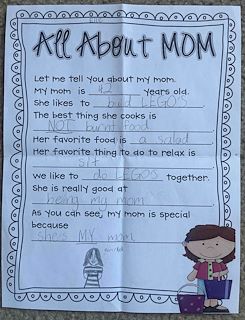 All About MOM
Let me tell you about my mom.
My mom is 42 years old.
She likes to build LEGO'S
The best thing she cooks is
NOT burnt food
Her favorite food is a salad
Her favorite thing to do to relax is
sit
We like to do LEGOS together.
She is really good at
being my mom
As you can see, my mom is special
because
she's MY mom